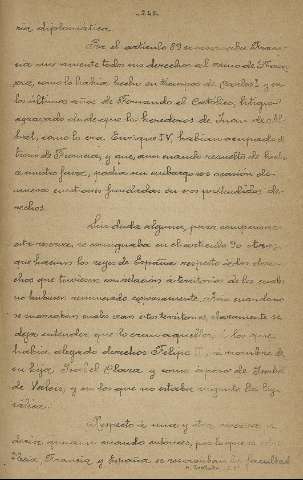 ria diplomática.
Por el articulo 89 se reservaba Fran-
cia nuevamente todos sus derechos al reino de Nava-
rra, como lo habia hecho en tiempos de Carlos I y en
los últimos años de Fernando el Católico, litigio
agravado desde que los herederos de Juan de Al-
bret, como lo era Enrique IV, habian ocupado el
trono de Francia, y que, aun cuando resuelto de hecho
a nuestro favor, podia sin embargo ser ocasion de
nuevas cuestiones fundadas en esos pretendidos de-
rechos.
Sin duda alguna, para compensar
esta reserva, se consignaba en el articulo 90 otra
que hacian los reyes de España respecto á los dere-
chos que tuvieran con relación á territorios de los cuales
no hubiesen renunciado expresamente. Aun cuando no
se marcaban cuales eran estos territorios, claramente se
deja entender que lo eran aquellos á los que
habia alegado derechos Felipe II, á nombre de
su hija Isabel Clara y como esposo de Isabel
de Valois, y en los que no estaba vigente la ley
sálica.
Respecto á una y otra reserva se
decia
Francia y España se reservaban la facultad